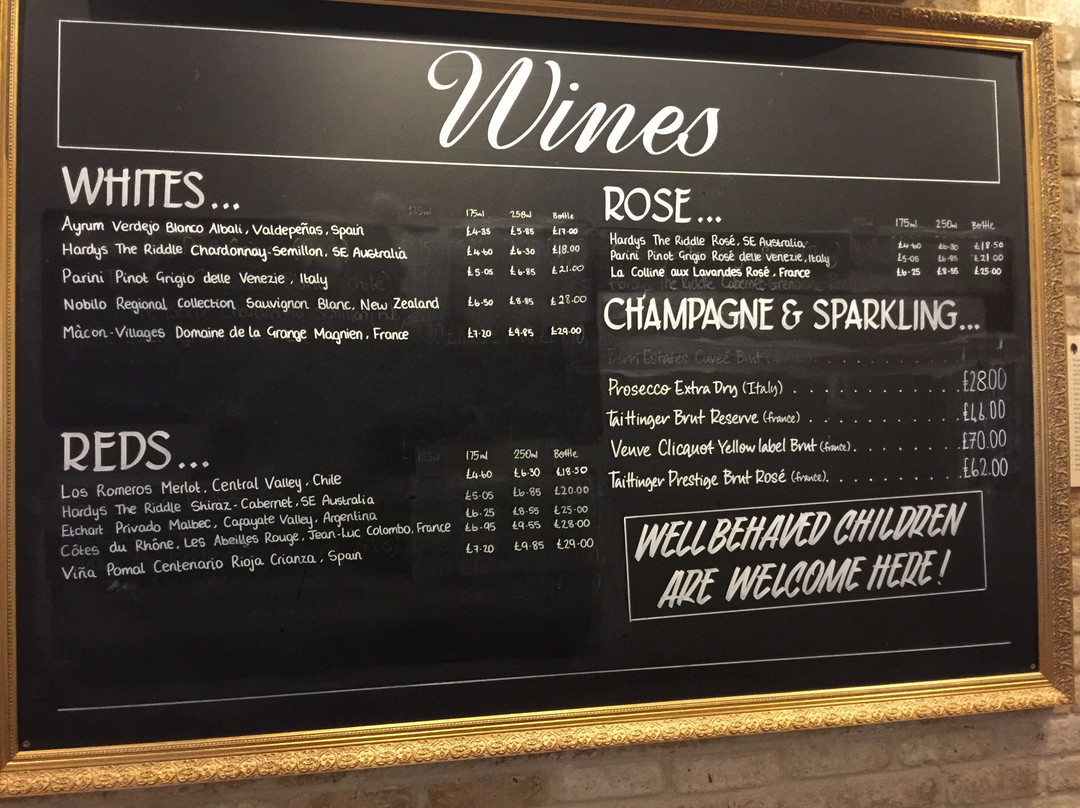 Wines
WHITES...
175ml 250ml Bottle
Ayrum Verdejo Blanco Albali, Valdepeñas, Spain £4.35 £5.85 £17.00
Hardys The Riddle Chardonnay-Semillon, SE Australia £4.60 £6.30 £18.00
Parini Pinot Grigio delle Venezie, Italy £5.05 £6.85 £21.00
Nobilo Regional Collection Sauvignon Blanc, New Zealand £6.50 £8.85 £28.00
Mâcon-Villages Domaine de la Grange Magnien, France £7.20 £9.85 £29.00
REDS...
175ml 250ml Bottle
Los Romeros Merlot, Central Valley, Chile £4.60 £6.30 £18.50
Hardys The Riddle Shiraz-Cabernet, SE Australia £5.05 £6.85 £20.00
Etchart Privado Malbec, Cafayate Valley, Argentina £6.25 £8.55 £25.00
Côtes du Rhône, Les Abeilles Rouge, Jean-Luc Colombo, France £6.95 £9.55 £28.00
Viña Pomal Centenario Rioja Crianza, Spain £7.20 £9.85 £29.00
ROSE...
175ml 250ml Bottle
Hardys The Riddle Rosé, SE Australia £4.60 £6.30 £18.50
Parini Pinot Grigio Rosé delle Venezie, Italy £5.05 £6.85 £21.00
La Colline aux Lavandes Rosé, France £6.25 £8.55 £25.00
CHAMPAGNE & SPARKLING...
Prosecco Extra Dry (Italy) £28.00
Taittinger Brut Reserve (france) £46.00
Veuve Clicquot Yellow label Brut (france) £70.00
Taittinger Prestige Brut Rosé (france) £62.00
WELL BEHAVED CHILDREN
ARE WELCOME HERE!